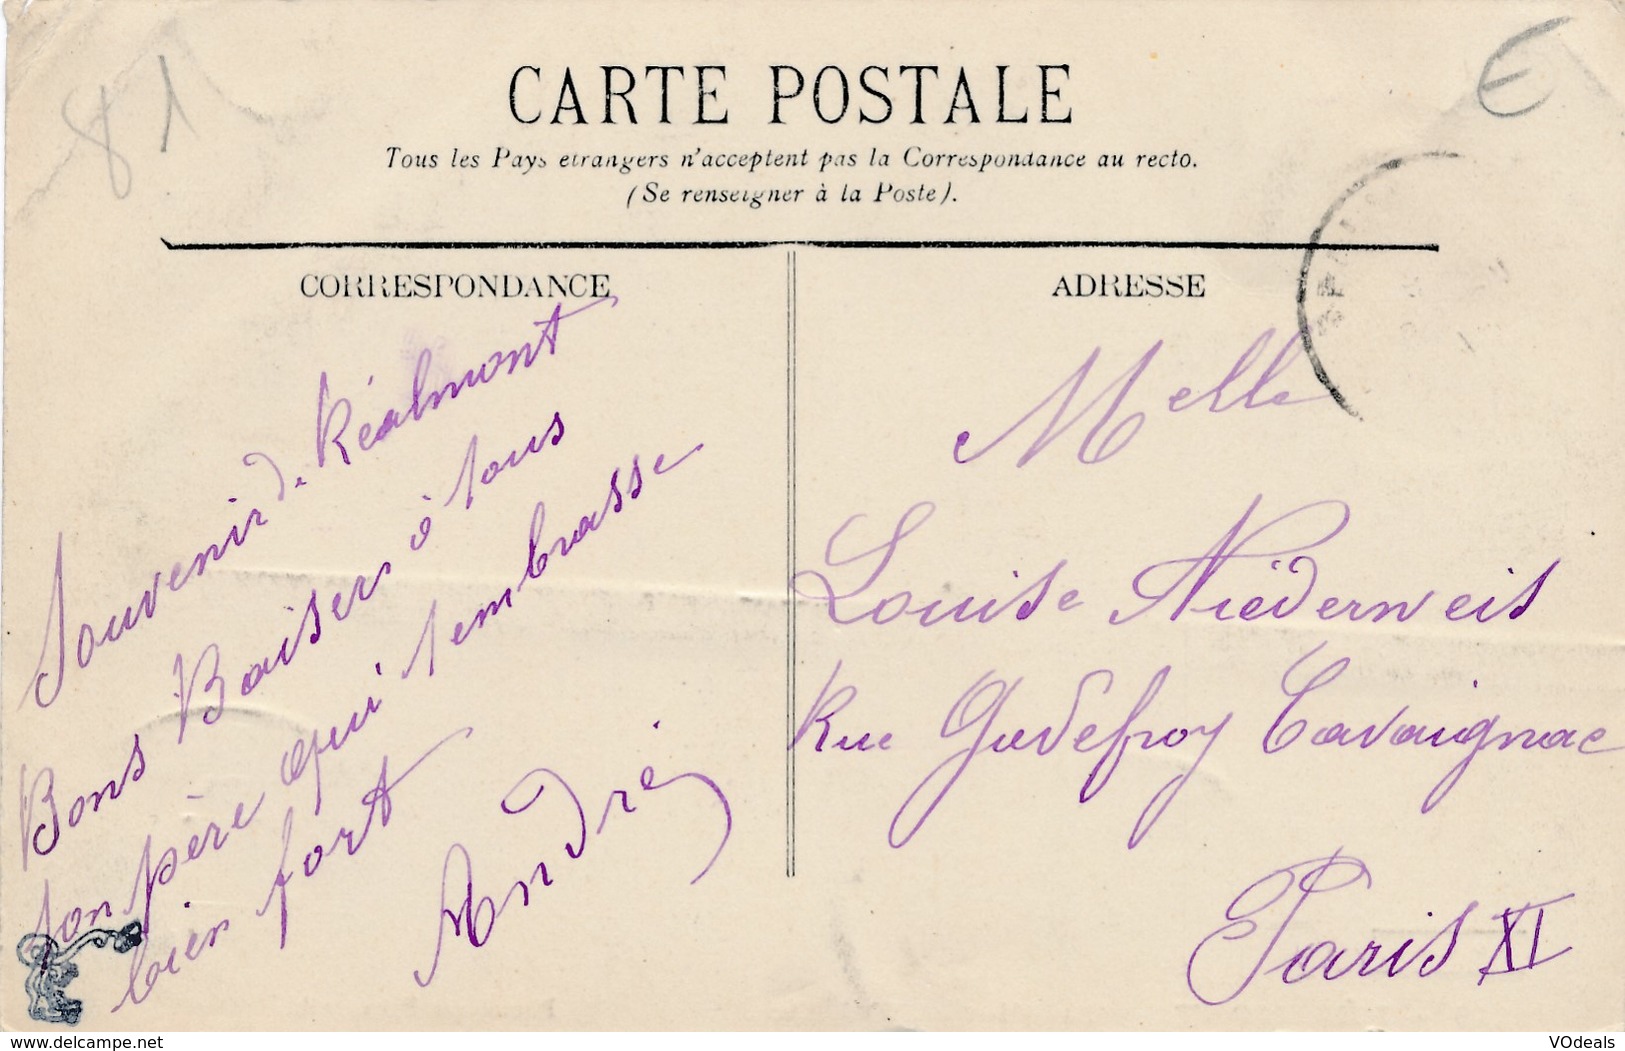 81
E
CARTE POSTALE
Tous les Pays étrangers n'acceptent pas la Correspondance au recto.
(Se renseigner à la Poste).
CORRESPONDANCE
Souvenir de Réalmont
Bons Baisers à tous
ton père qui t'embrasse
bien fort
André
ADRESSE
Melle
Louise Niëderweis
Rue Godefroy Cavaignac
Paris XI
www.delcampe.net
VOdeals